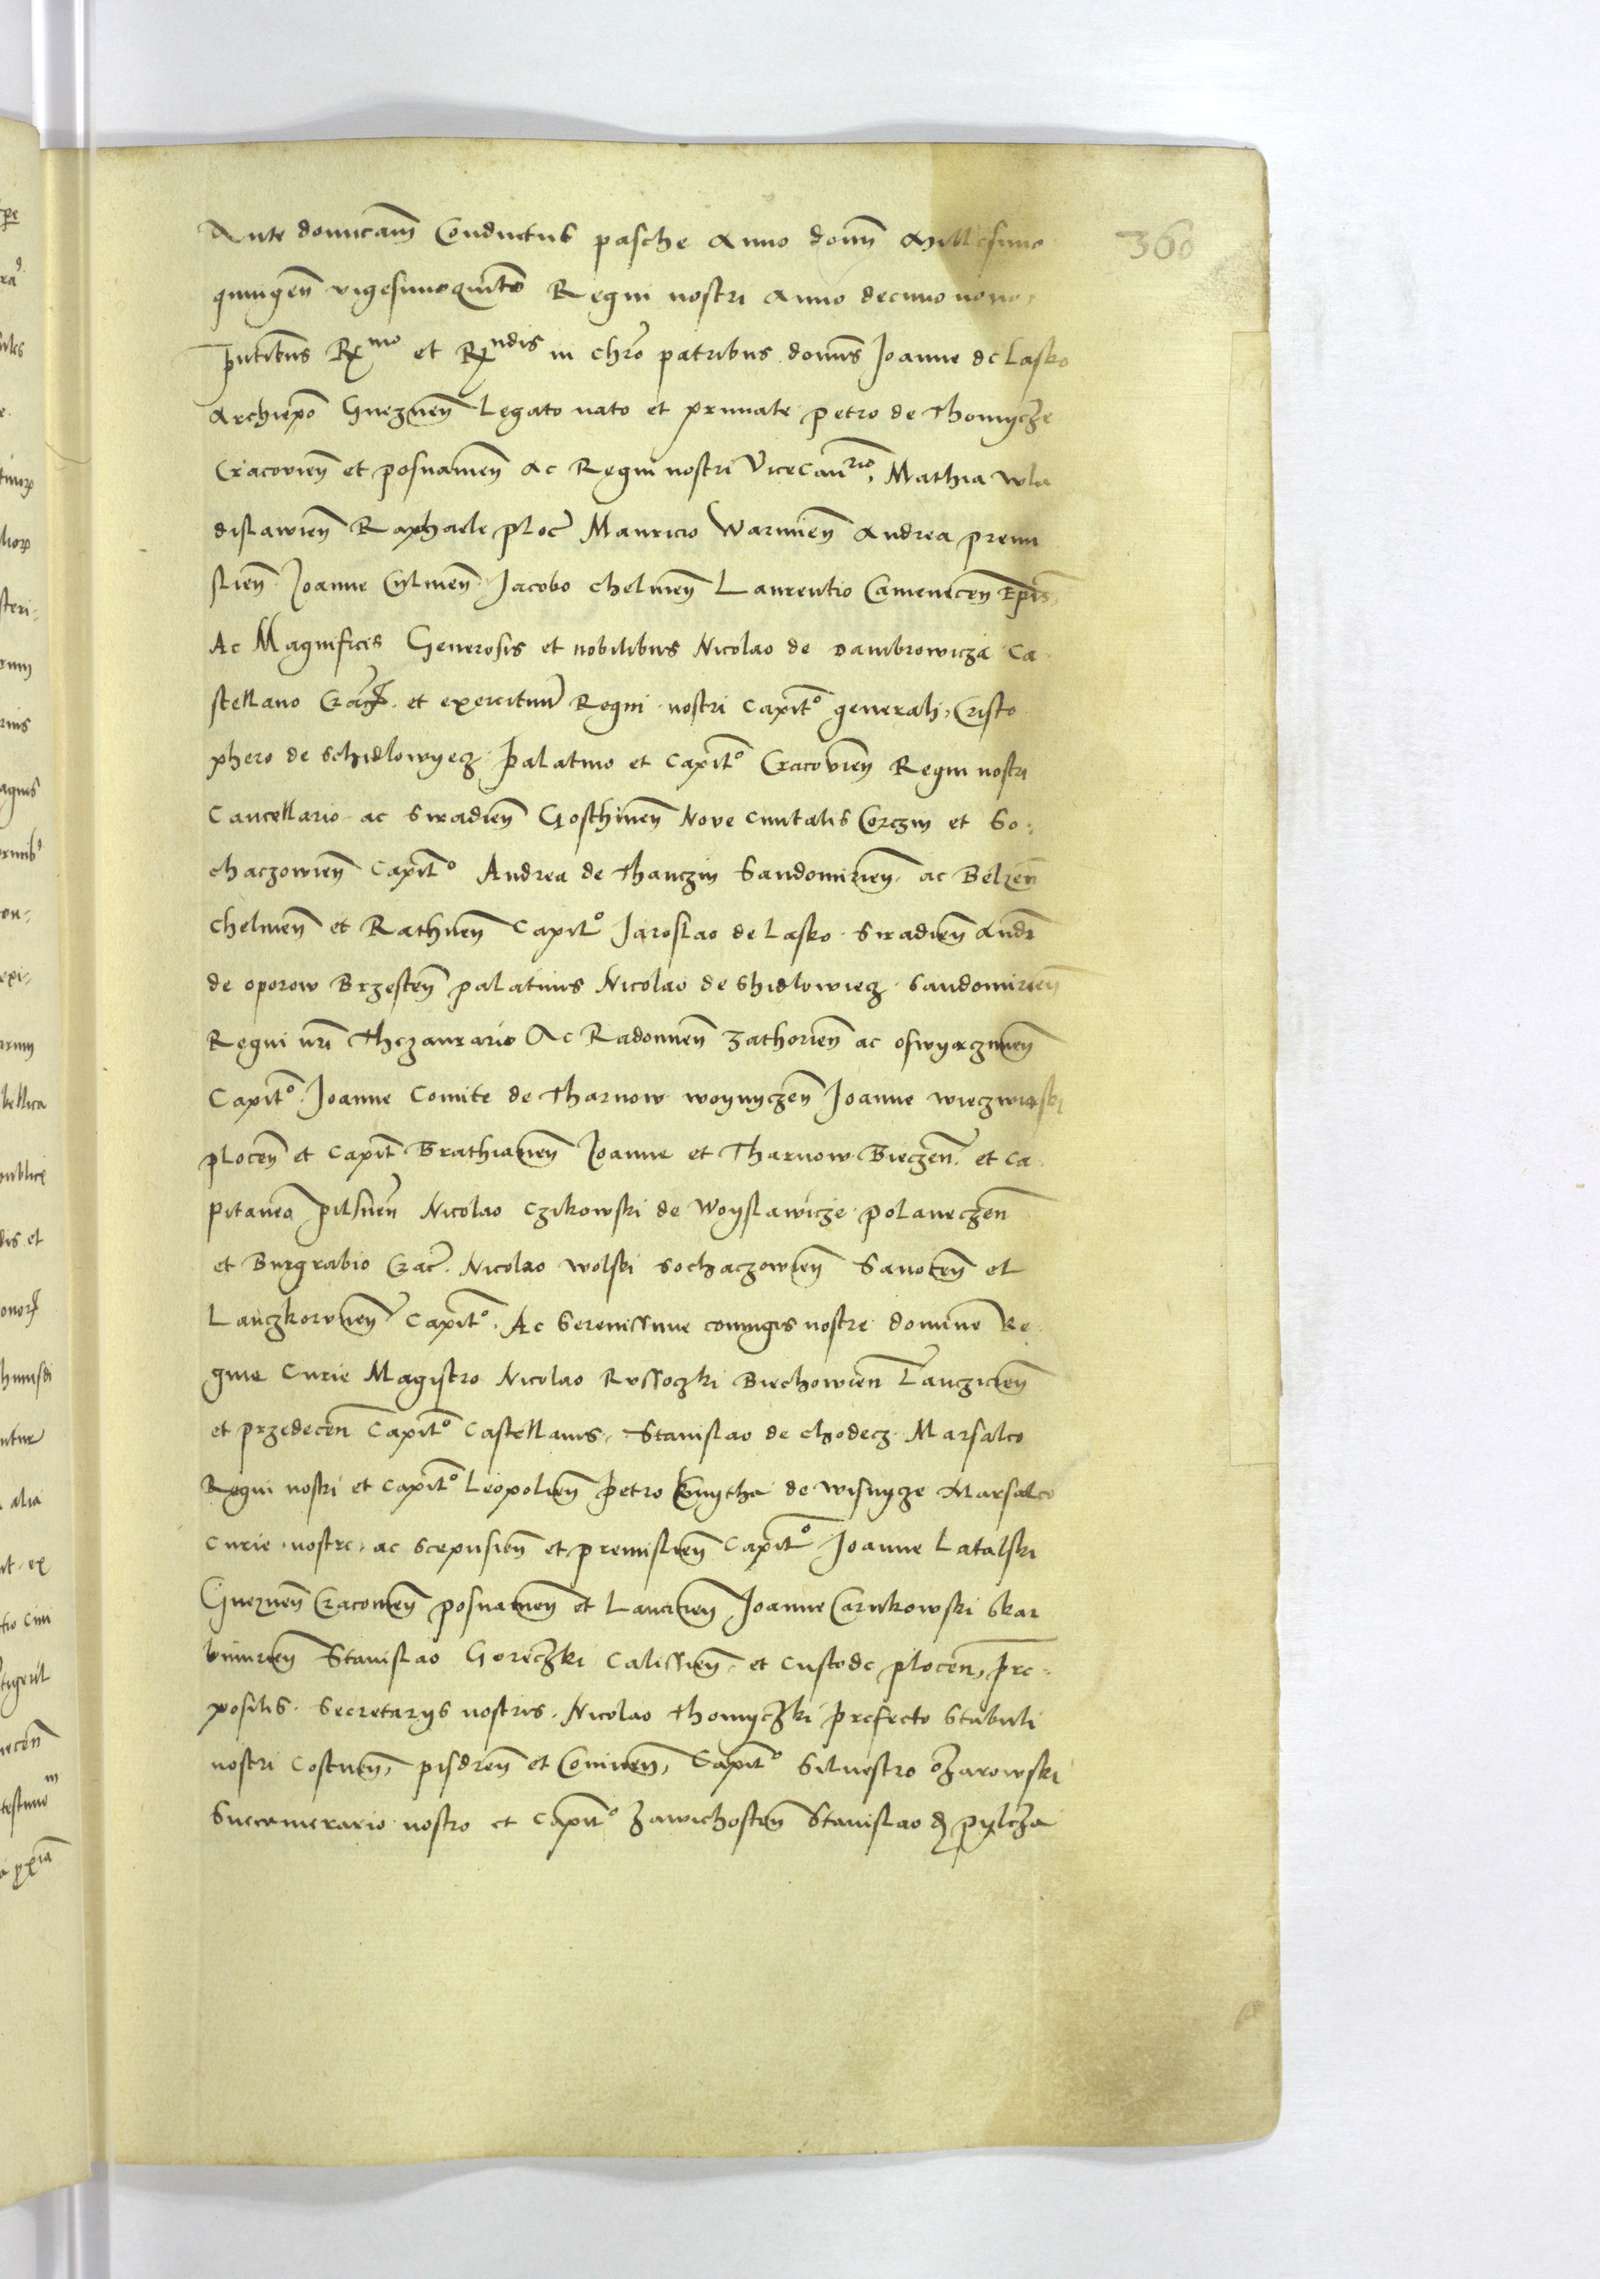 360
Ante donucam̄ Conductus pasche Anno domī Millesimo
quingeñ vigesimoquinto Regni nostri Anno decimo nono,
P̄ntibus Rx̄mo et Rx̄ndis in chrō patribus domīs Joanne de Lasko
Archiepō Gnezneñ Legato nato et primate Petro de Thomycze
Cracovieñ et posnanieñ Ac Regni nostri ViceCanrio, Mathia wla
dislawieñ Raphaele ploc̄ Mauricio Warmieñ Andrea premi
slieñ Joanne Culmeñ Jacobo chelmeñ Laurentio Cameneceñ Ep̄is,
Ac Magnificis Generosis et nobilibus Nicolao de Dambrowicza Ca
stellano Crac̄ et exercituū Regni nostri Capit̄o generali, Cristo
phero de Schidlowyecz Palatino et Capit̄o Cracovieñ Regni nostri
Cancellario ac Siradieñ Gosthineñ Nove Civitatis Corczin et So:
chaczowieñ Capit̄o Andrea de Thanczin Sandomirieñ ac Belzeñ
Chelmeñ et Rathneñ Capit̄o Jaroslao de Lasko Siradieñ Andr̄
de oporow Brzesteñ palatinis Nicolao de Shidlowiecz Sandomirieñ
Regni nr̄i Thezaurario Ac Radomieñ Zathorieñ ac oswyaczimeñ
Capit̄o Joanne Comite de Tharnow woynyczeñ Joanne wieczwinski
ploceñ et Capit̄ Brathianeñ Joanne et Tharnow Bieczeñ et Ca
pitaneo Pilsneñ Nicolao Czikowski de Woyslawicze polaneczeñ
et Burgrabio Crac̄. Nicolao wolski Sochaczowieñ Sanoceñ et
Lanczkoruneñ Capit̄o. Ac Serenissime coniugis nostre domine Re
gine Curie Magistro Nicolao Russoczki Biechowieñ Lanczicieñ
et przedeceñ Capit̄o Castellanis, Stanislao de chodecz Marsalco
Regni nostri et Capit̄o Leopolieñ Petro Kmytha de wisnycze Marsalco
Curie nostre ac Scepusieñ et premislieñ Capit̄o Joanne Latalski
Gnezneñ Cracovieñ posnanieñ et Lancicieñ Joanne Carnkowski Skar
bimirieñ Stanislao Goreczki Calissieñ et Custode ploceñ, Pre-
positis Secretarys nostris. Nicolao Thomyczki Prefecto Stabuli
nostri Costneñ, pisdreñ et Conineñ, Capit̄o Siluestro ozarowski
Succamerario nostro et Capit̄o Zawichosteñ Stanislao d pylcza